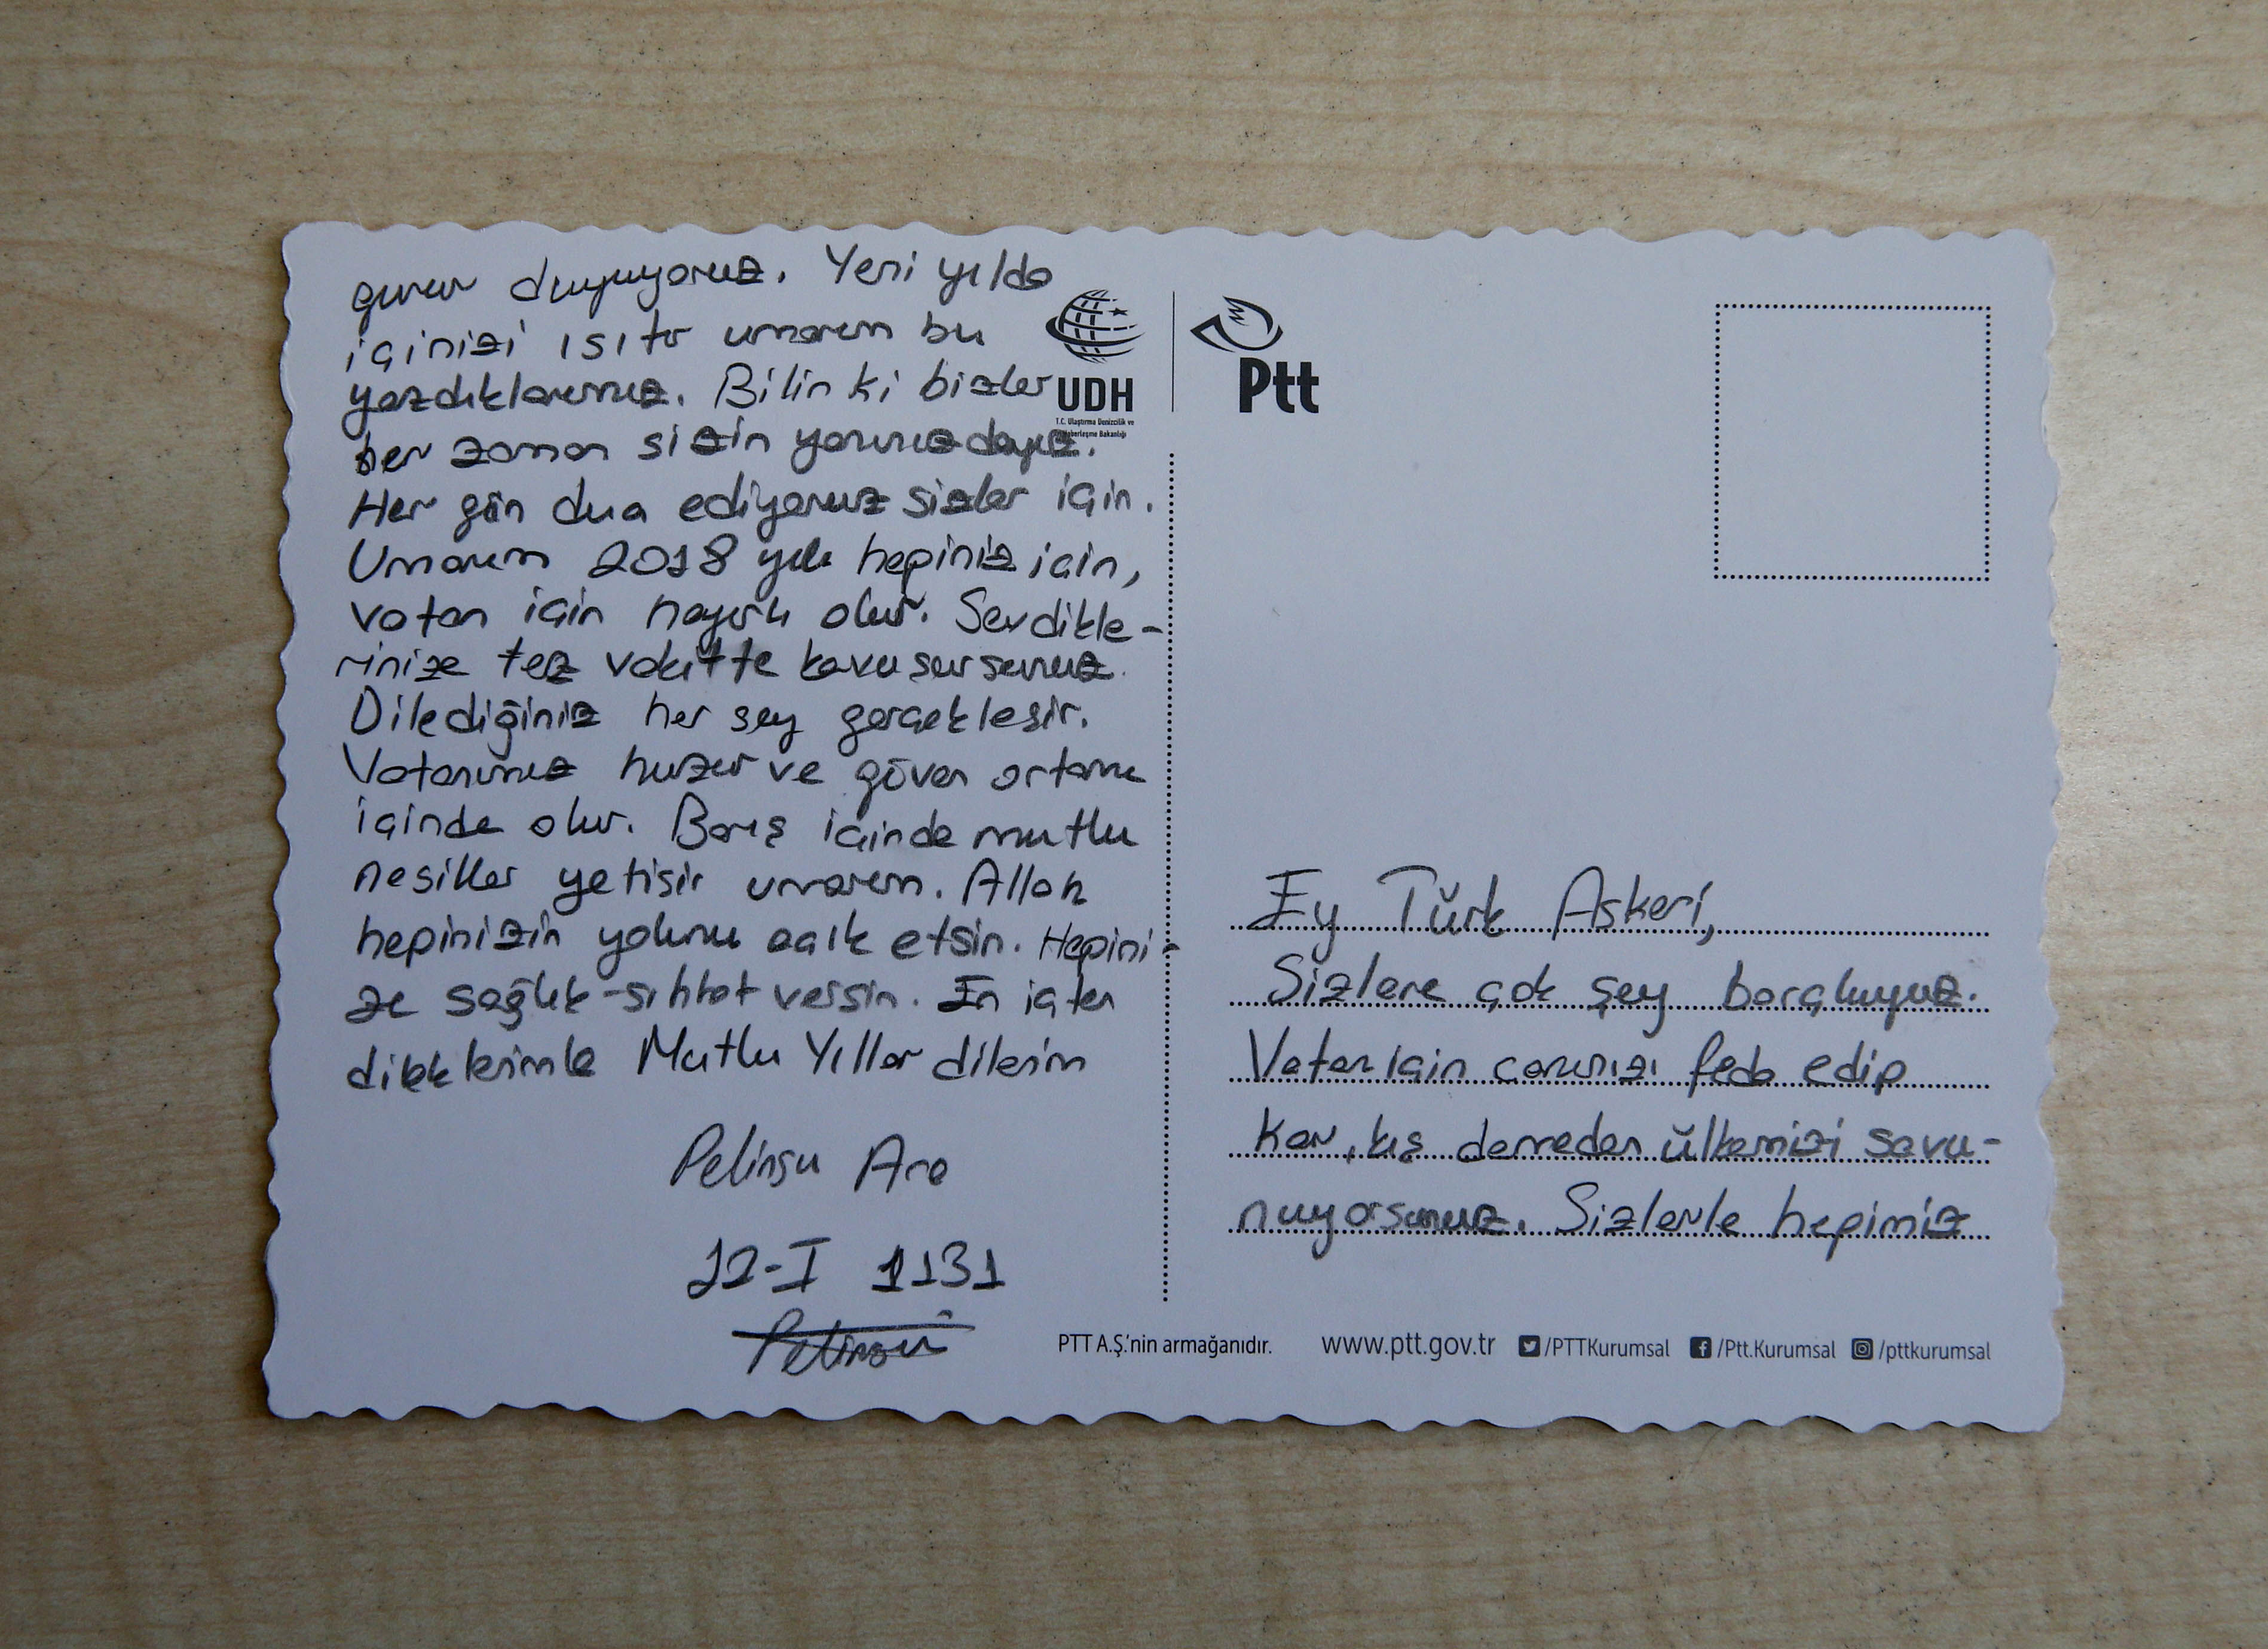 gurur duyuyoruz. Yeni yılda
içinizi ısıtır umarım bu
yazdıklarımız. Bilin ki bizler
her zaman sizin yanınızdayız.
Her gün dua ediyoruz sizler için.
Umarım 2018 yılı hepiniz için,
vatan için hayırlı olur. Sevdikle-
rinize tez vakitte kavuşursunuz.
Dilediğiniz her şey gerçekleşir.
Vatanımız huzur ve güven ortamı
içinde olur. Barış içinde mutlu
nesiller yetişir umarım. Allah
hepinizin yolunu açık etsin. Hepini-
ze sağlık-sıhhat versin. En içten
dileklerimle Mutlu Yıllar dilerim
Pelinsu
12-I 1131
Pelinsu
UDH
T.C. Ulaştırma Denizcilik ve
Haberleşme Bakanlığı
Ptt
Ey Türk Askeri,
Sizlere çok şey borçluyuz.
Vatan için canınızı feda edip
kar, kış demeden ülkemizi savu-
nuyorsunuz. Sizlerle hepimiz
PTT A.Ş.'nin armağanıdır. www.ptt.gov.tr /PTTKurumsal /Ptt.Kurumsal /pttkurumsal